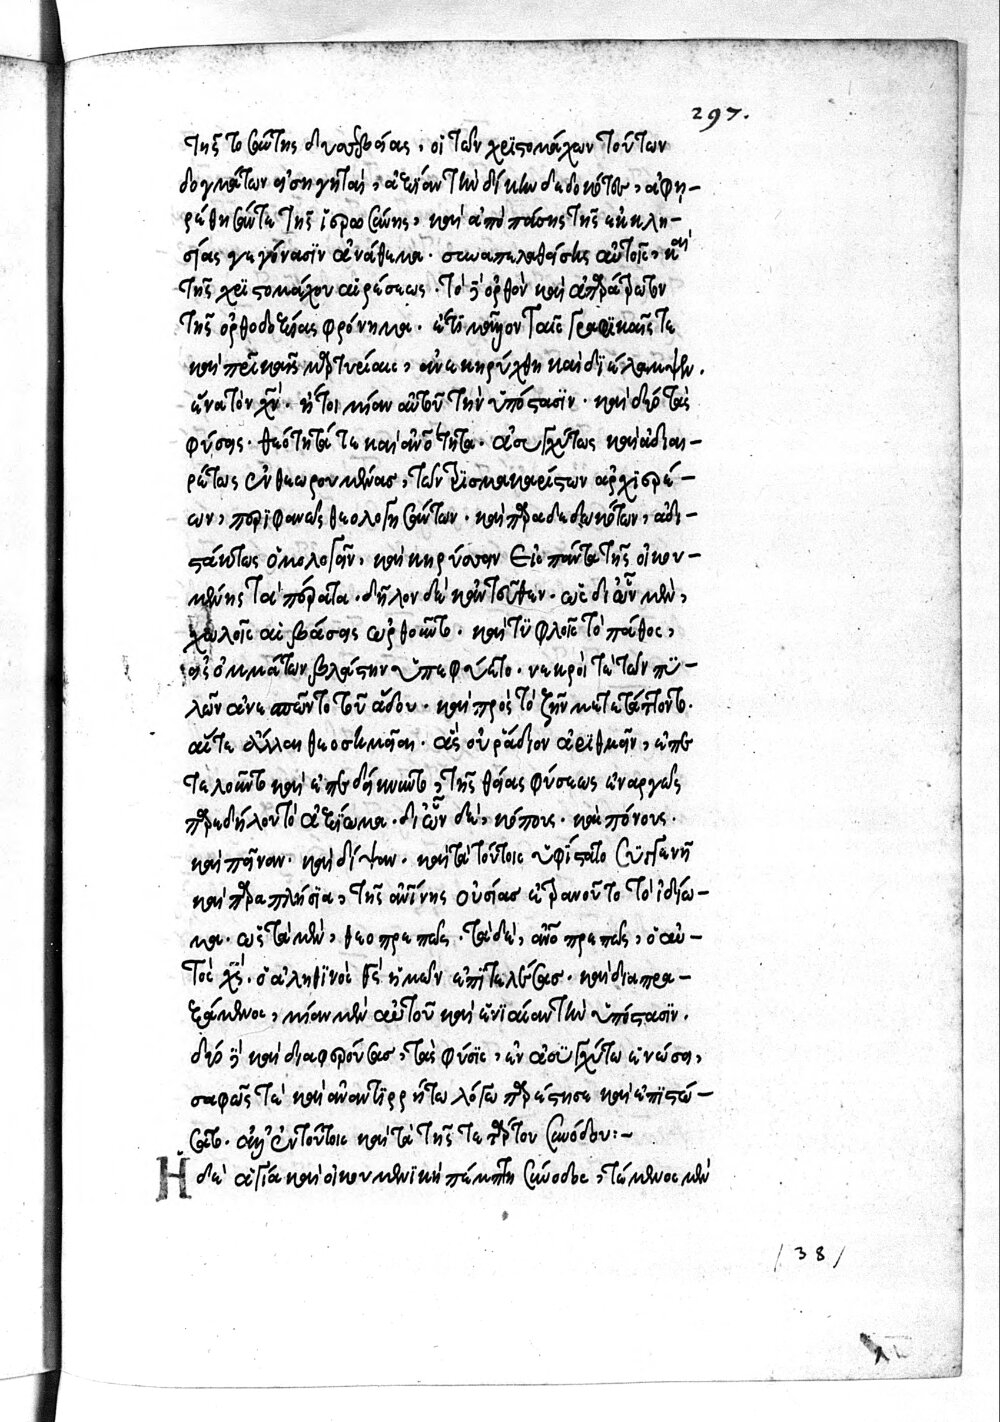 297.
τῆς τοσαύτης δυσσεβείας, οἱ τῶν χριστομάχων τούτων
δογμάτων εἰσηγηταὶ, ἀξίαν τὴν δίκην δεδωκότες, ἀφη-
ρέθησάν τε τῆς ἱερωσύνης, καὶ ἀπὸ πάσης τῆς ἐκκλη-
σίας γεγόνασιν ἀνάθεμα. συναπελαθείσης αὐτοῖς, καὶ
τῆς χριστομάχου αἱρέσεως. τὸ δὲ ὀρθὸν καὶ ἀπαράτρωτον
τῆς ὀρθοδοξίας φρόνημα. ἔτι μᾶλλον ταῖς γραφικαῖς τε
καὶ πατρικαῖς μαρτυρίαις, ἀνεκηρύχθη καὶ διέλαμψεν.
ἕνα τὸν χν. ἤτοι μίαν αὐτοῦ τὴν ὑπόστασιν. καὶ δύο τὰς
φύσεις. θεότητά τε καὶ ἀνότητα. ἀσυγχύτως καὶ ἀδιαι-
ρέτως ἐνθεωρουμένας, τῶν τρισμακαρίστων ἀρχιερέ-
ων, περιφανῶς θεολογησάντων. καὶ παραδεδωκότων, ἀδι-
στάκτως ὁμολογεῖν, καὶ κηρύσσειν εἰς πάντα τῆς οἰκου-
μένης τὰ πέρατα. δῆλον δὲ κἀντεῦθεν. ὡς δι ὧν μὲν,
χωλοῖς αἱ βάσεις ὠρθοῦντο. καὶ τυφλοῖς τὸ πάθος,
εἰς ὀμμάτων βλάστην ὑπεφύετο. νεκροί τε τῶν πυ-
λῶν ἀνεσπῶντο τοῦ ἅδου. καὶ πρὸς τὸ ζῆν μετετάττοντο.
αἵ τε ἄλλαι θεοσημεῖαι. ἃς οὐ ῥάδιον ἀριθμεῖν,
τῆς θείας φύσεως ἐναργῶς
παρεδήλου τὸ ἀξίωμα. δι ὧν δὲ, κόπους. καὶ πόνους.
καὶ πεῖναν. καὶ δίψαν. καὶ τὰ τούτοις ὑφίστατο συγγενῆ
καὶ παραπλήσια, τῆς ἀνίνης οὐσίας ἐτρανοῦτο τὸ ἰδίω-
μα. ὡς τὰ μὲν, θεοπρεπῶς. τὰ δὲ, ἀνοπρεπῶς, ὁ αὐ-
τὸς χς. ὁ ἀληθινὸς θς ἡμῶν ἐπιτελέσας. καὶ διαπρα-
ξάμενος, μίαν μὲν αὐτοῦ καὶ ἑνιαίαν τὴν ὑπόστασιν.
δύο δὲ καὶ διαφερούσας, τὰς φύσεις, ἐν ἀσυγχύτω ἑνώσει,
σαφῶς τε καὶ ἀναντιρρήτω λόγω παρέστησε καὶ ἐπιστώ-
σατο. ἀλλ' ἐν τούτοις καὶ τὰ τῆς τετάρτου συνόδου:-
Ἡ δὲ ἁγία καὶ οἰκουμενικὴ πέμπτη σύνοδος,
/38/